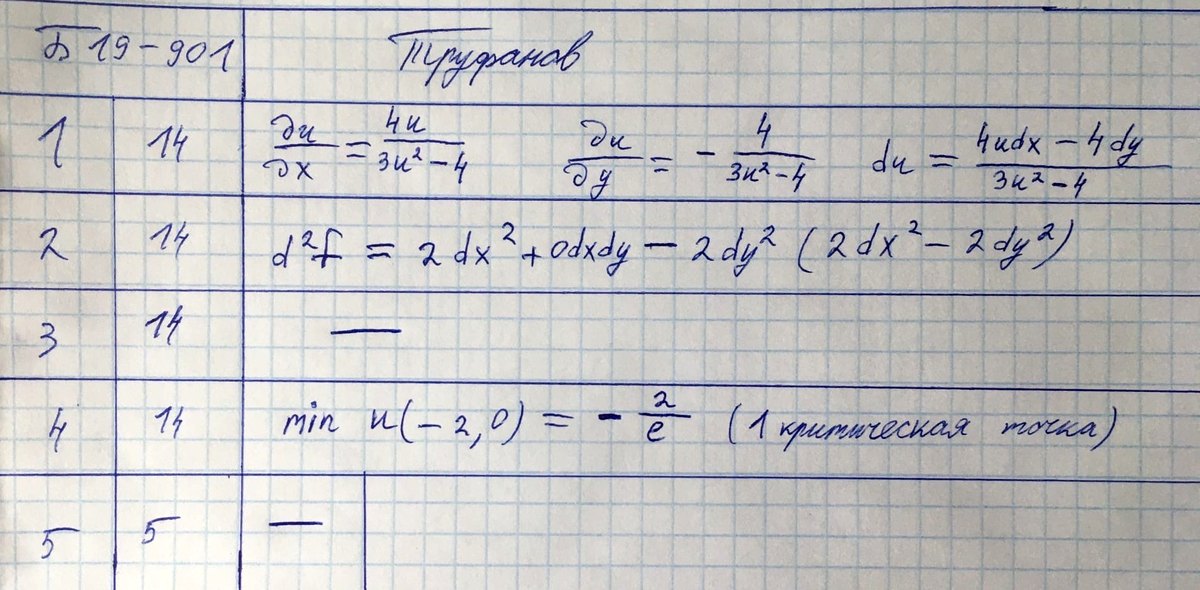 Б19-901 Труфанов
1 14 ∂u/∂x = 4u/(3u²-4) ∂u/∂y = - 4/(3u²-4) du = (4udx - 4dy)/(3u²-4)
2 14 d²f = 2dx² + 0dxdy - 2dy² (2dx² - 2dy²)
3 14 —
4 14 min u(-2,0) = - 2/e (1 критическая точка)
5 5 —